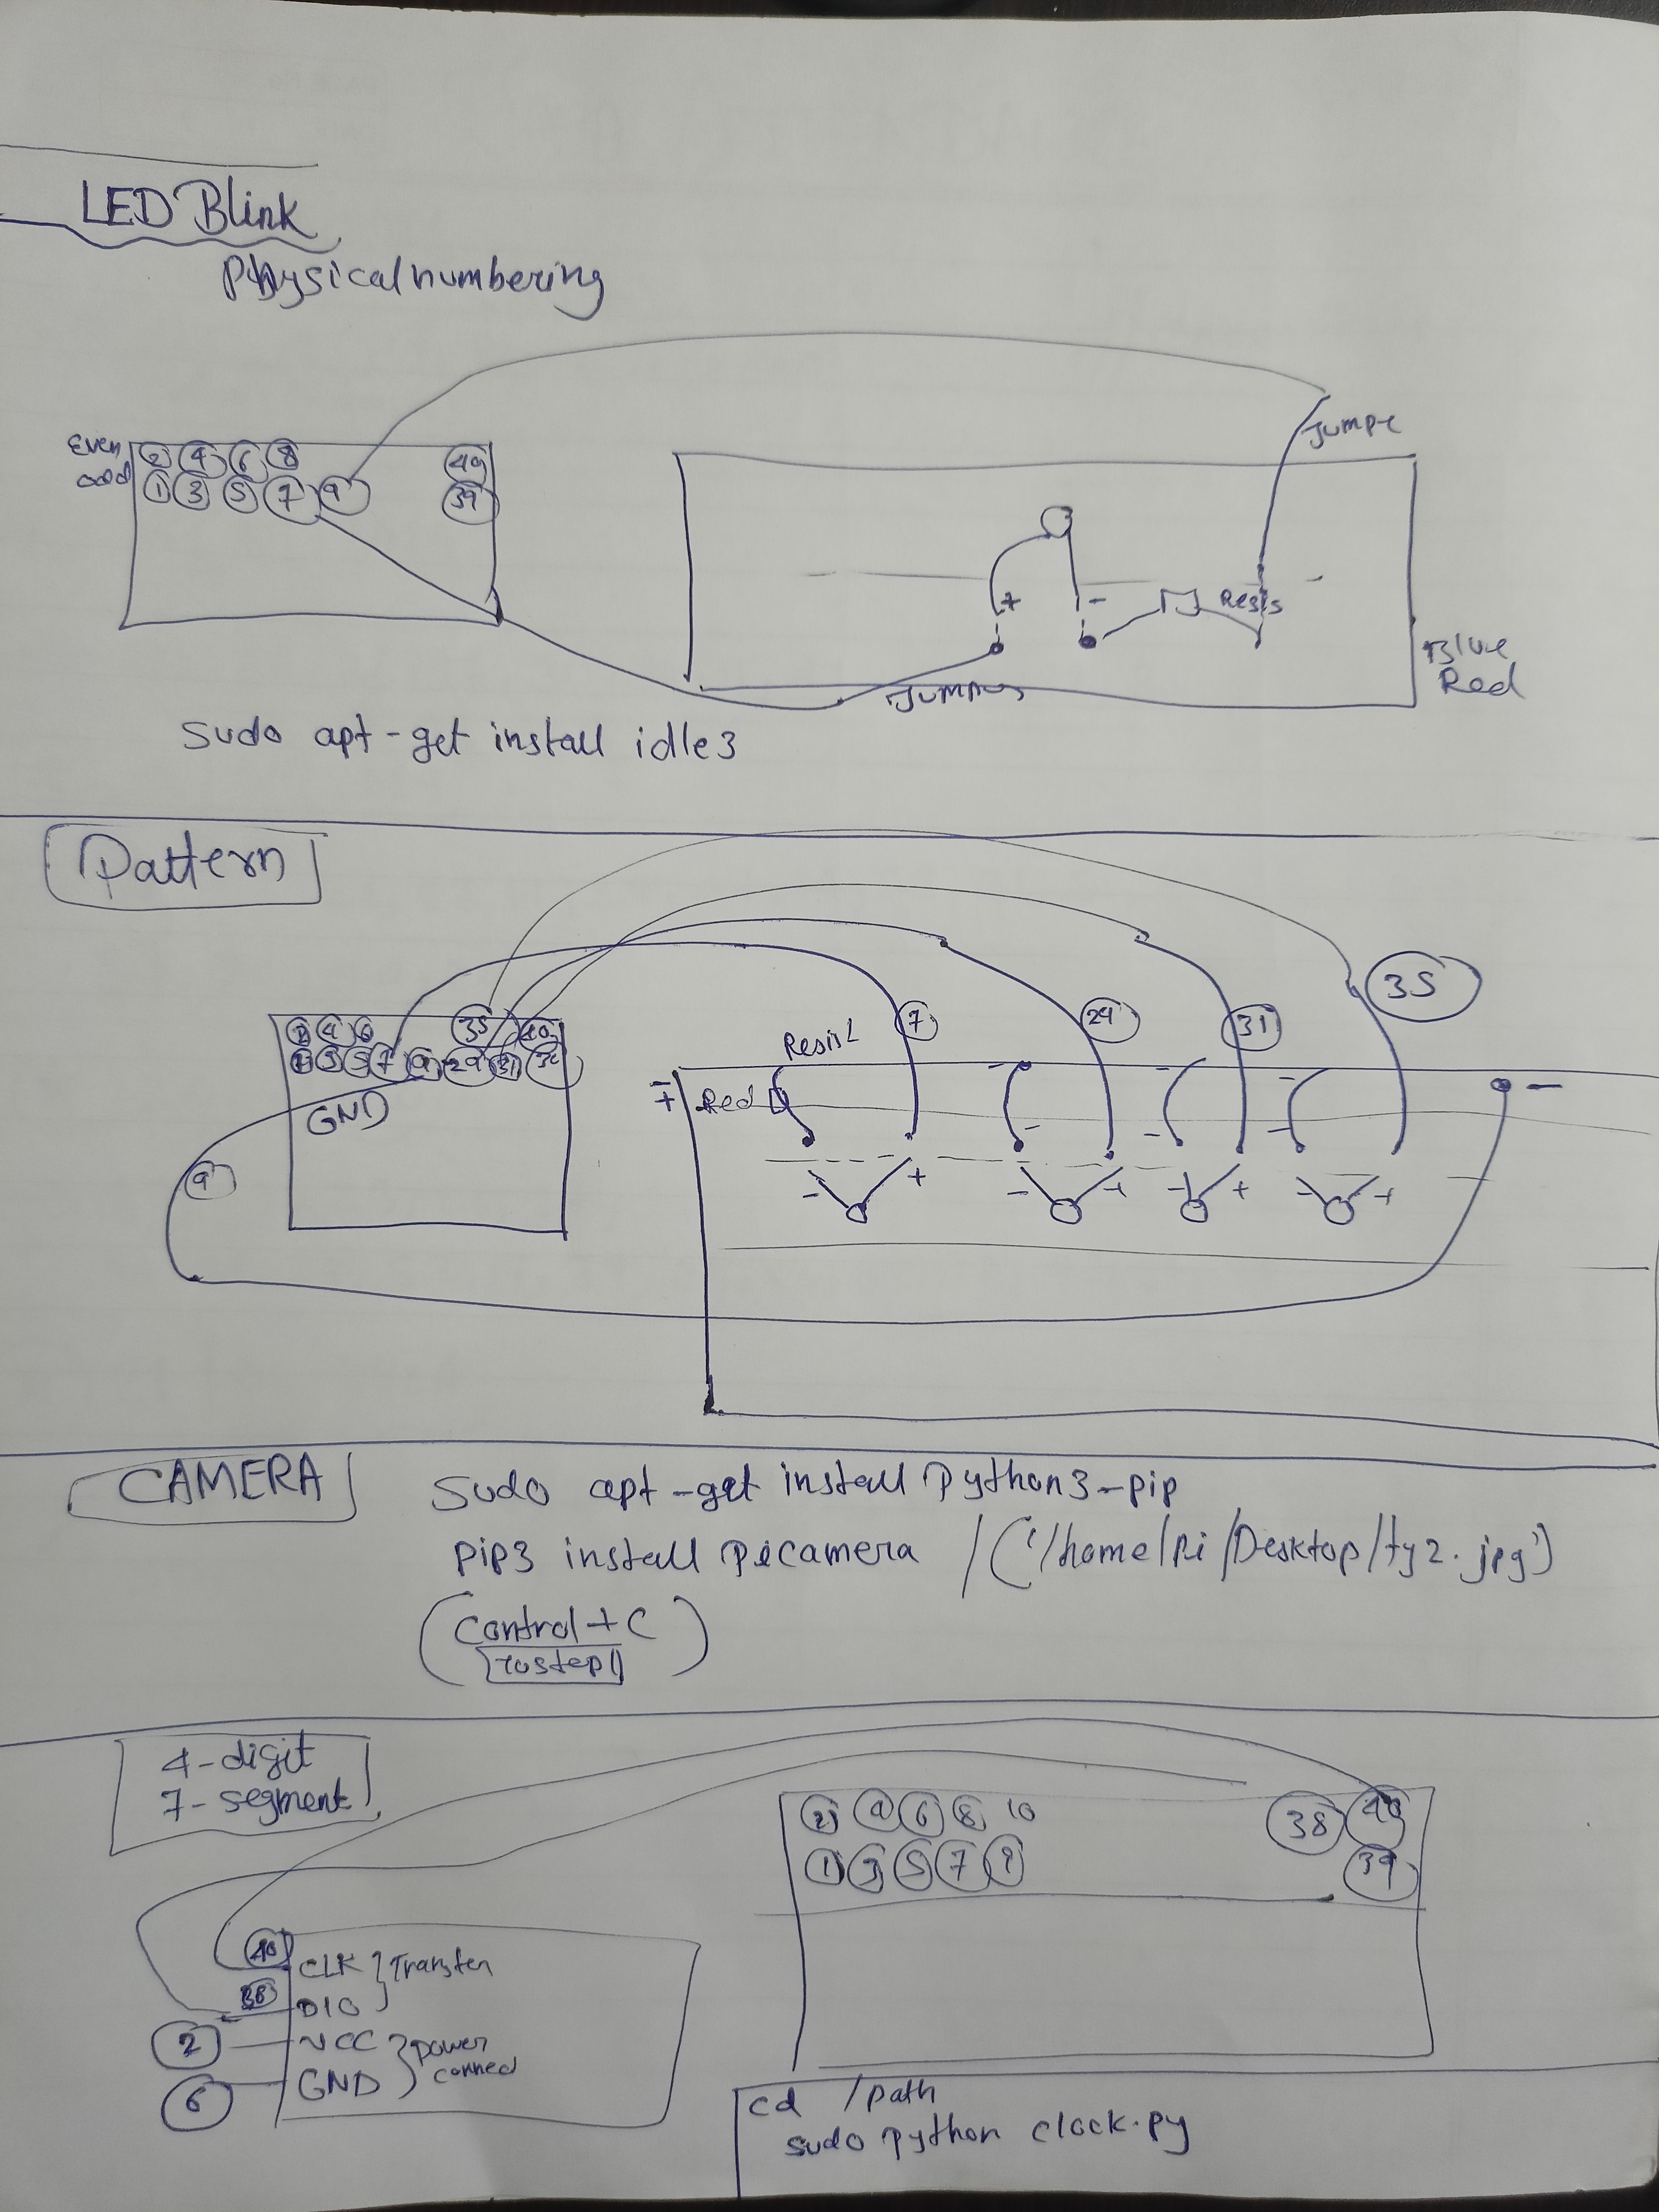 LED Blink
Physical numbering
Jumpe
Even 2 4 6 8 40
odd 1 3 5 7 9 39
+ - Resis
Blue
Red
Jumpus
Sudo apt-get install idle3
Pattern
35
7 29 31
2 4 6 35 40
1 3 5 7 9 29 31
Resist
GND
- +
Red
-
9
- + - + - + - +
CAMERA
Sudo apt-get install Python3-pip
pip3 install picamera / ('/home/Pi/Desktop/ty2.jpg')
(Control + C)
4-digit
7-segment
2 4 6 8 10 38 40
1 3 5 7 9 39
40 CLK } Transfer
38 DIO
2 VCC } power
connect
6 GND
cd /path
sudo python clock.py